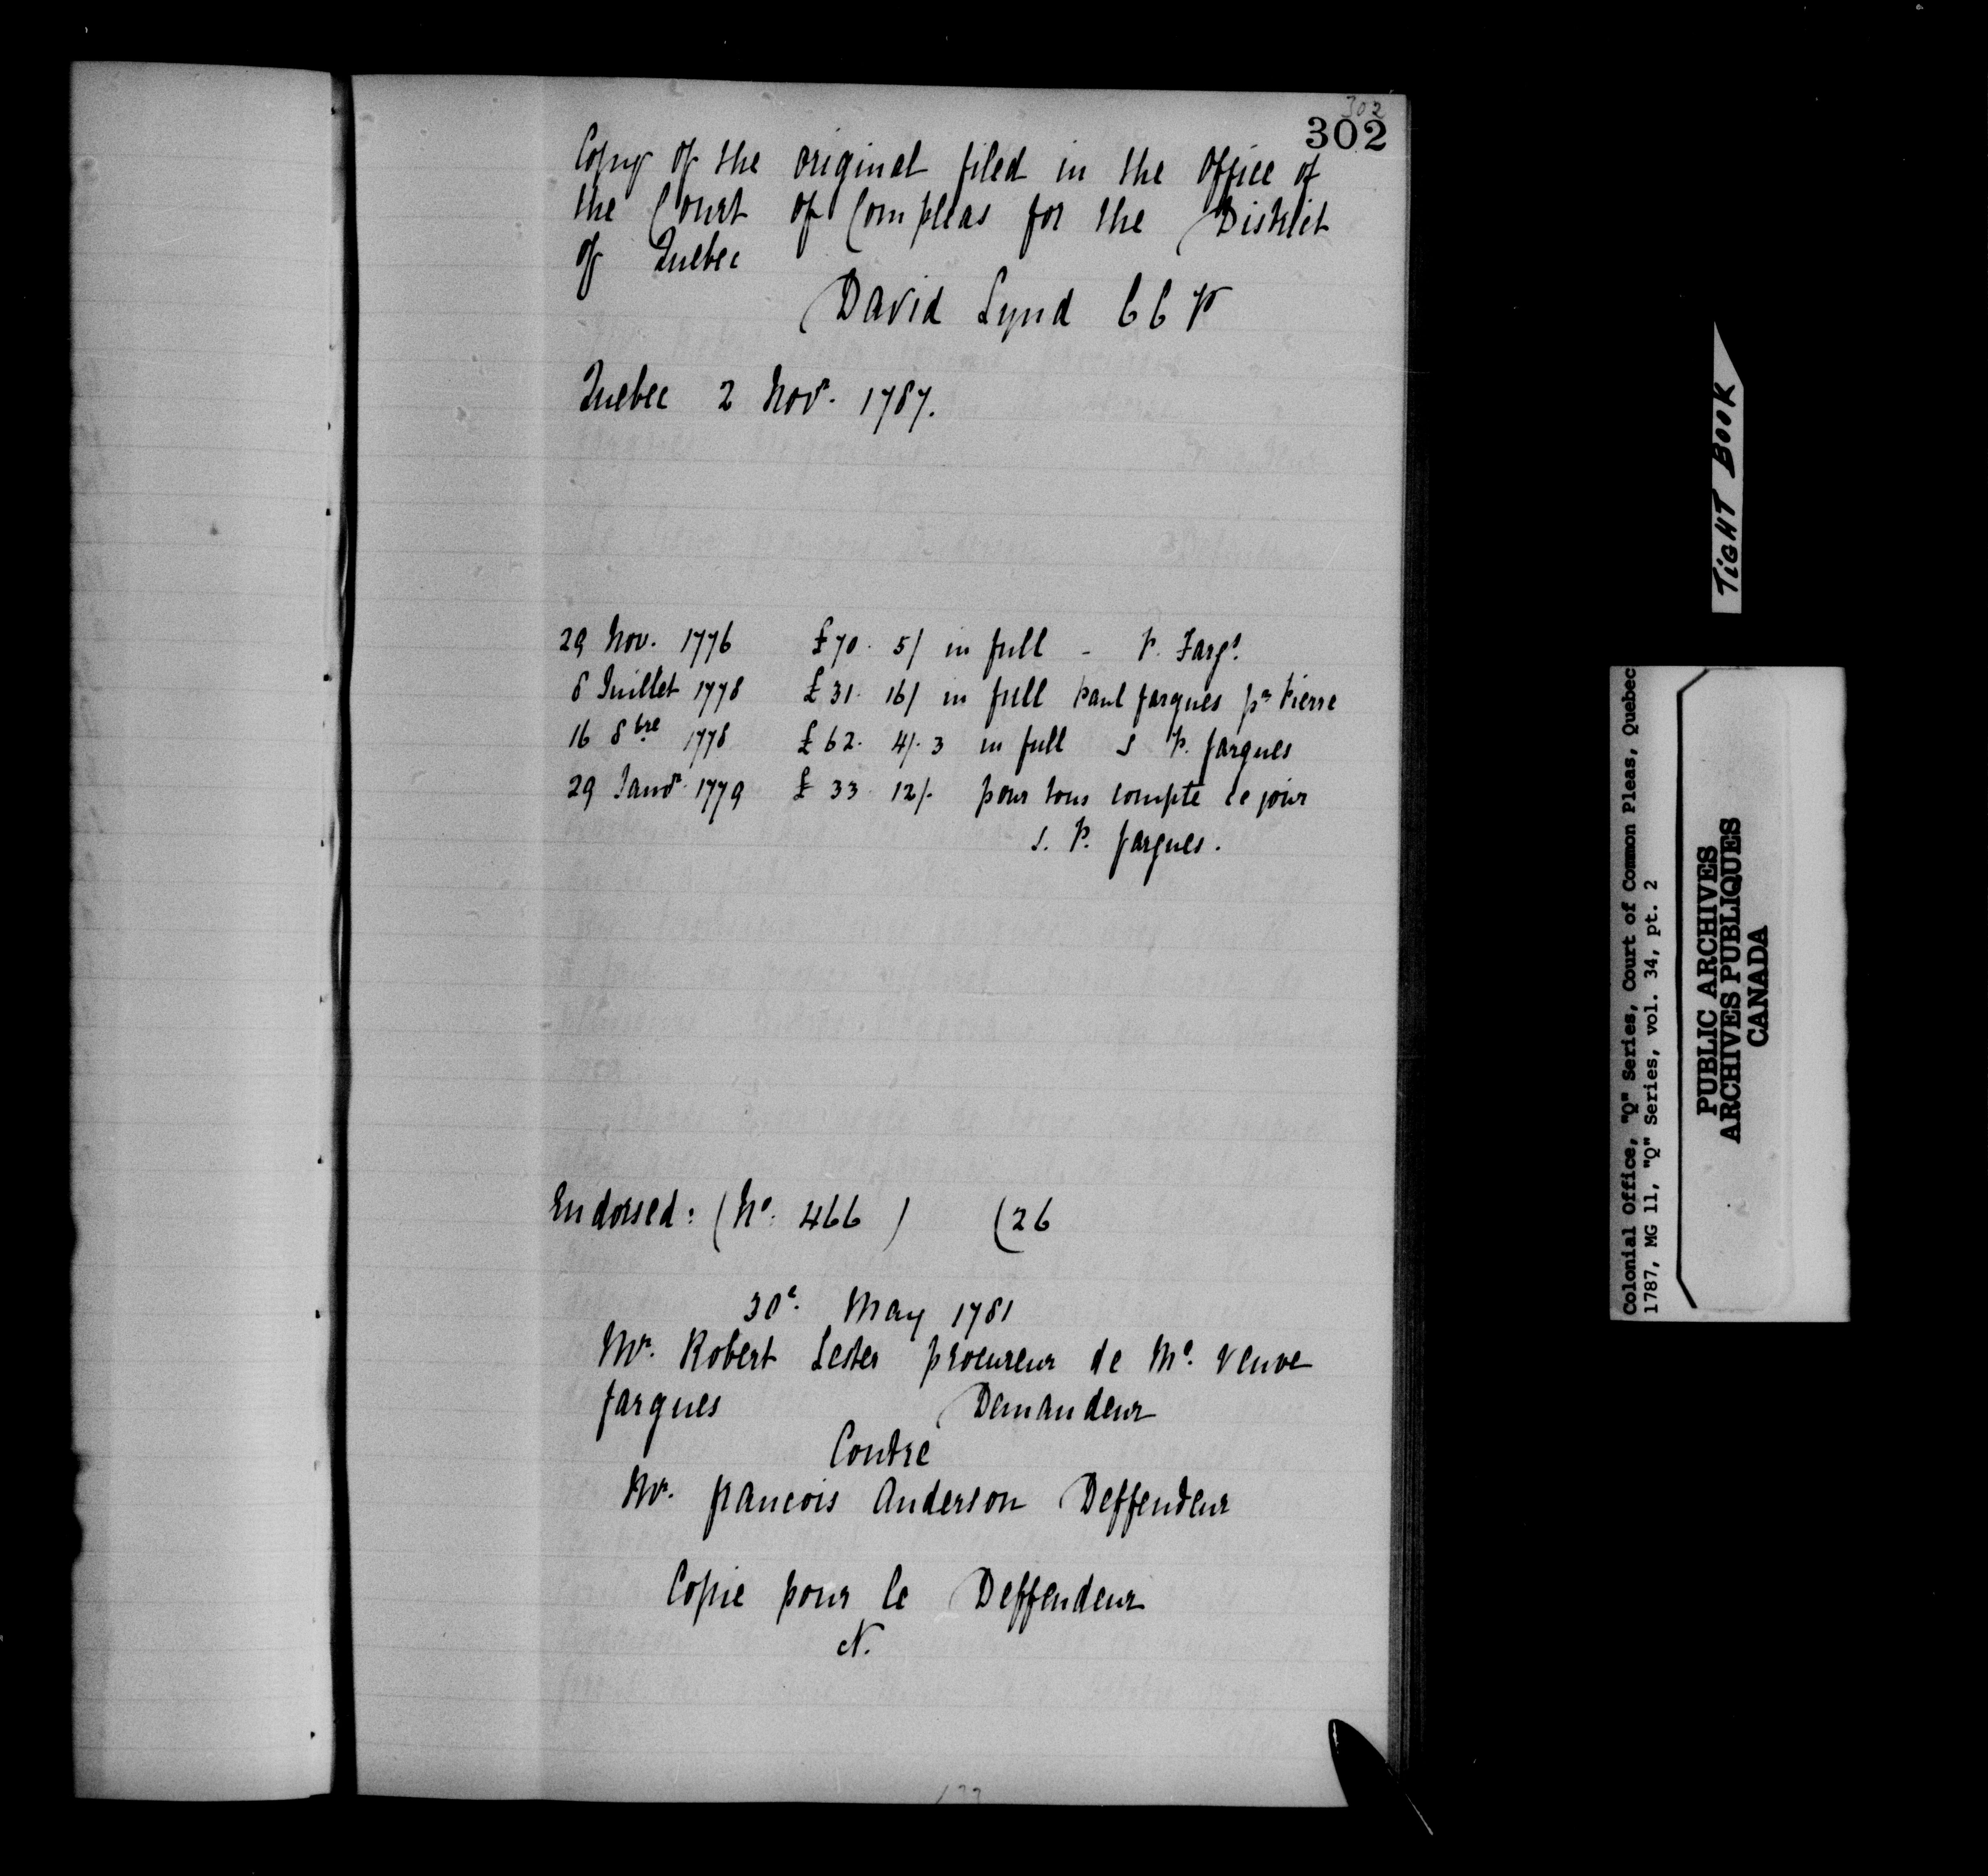 302
302
Copy of the original filed in the Office of
the Court of Com pleas for the District
of Quebec
David Lynd C C P
Quebec 2 Novr. 1787.
29 Nov. 1776 £70. 5/ in full - P. Fargs.
8 Juillet 1778 £31. 16/ in full Paul fargues pr Pierre
16 8bre 1778 £62. 4/. 3 in full S P. fargues
29 Janvr. 1779 £33. 12/. pour tous compte ce jour
S. P. fargues.
Endorsed: (No. 466 ) (26
30e. May 1781
Mr. Robert Lester procureur de Me. veuve
fargues Demandeur
Contre
Mr. francois Anderson Deffendeur
Copie pour le Deffendeur
N.
TIGHT BOOK
Colonial Office, "Q" Series, Court of Common Pleas, Quebec
1787, MG 11, "Q" Series, vol. 34, pt. 2
PUBLIC ARCHIVES
ARCHIVES PUBLIQUES
CANADA